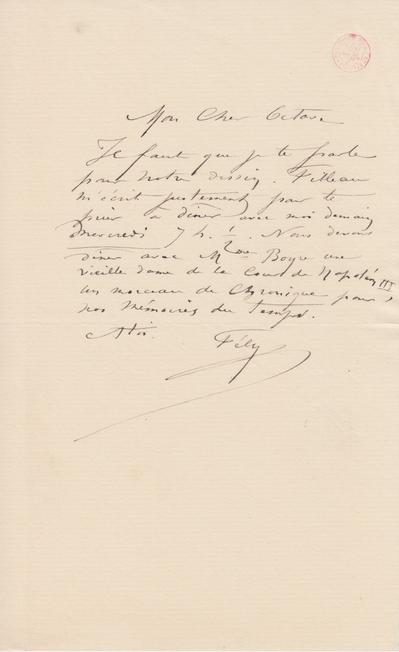 Mon Cher Octave
Il faut que je te parle
pour notre dessin. Filleau
m'écrit justement pour te
prier à dîner avec moi demain
Mercredi 7 h. 1/2. Nous devons
dîner avec Mme Boyer une
vieille dame de la Cour de Napoléon III
un morceau de Chronique pour
nos Mémoires du Temps.
A toi.
Fély